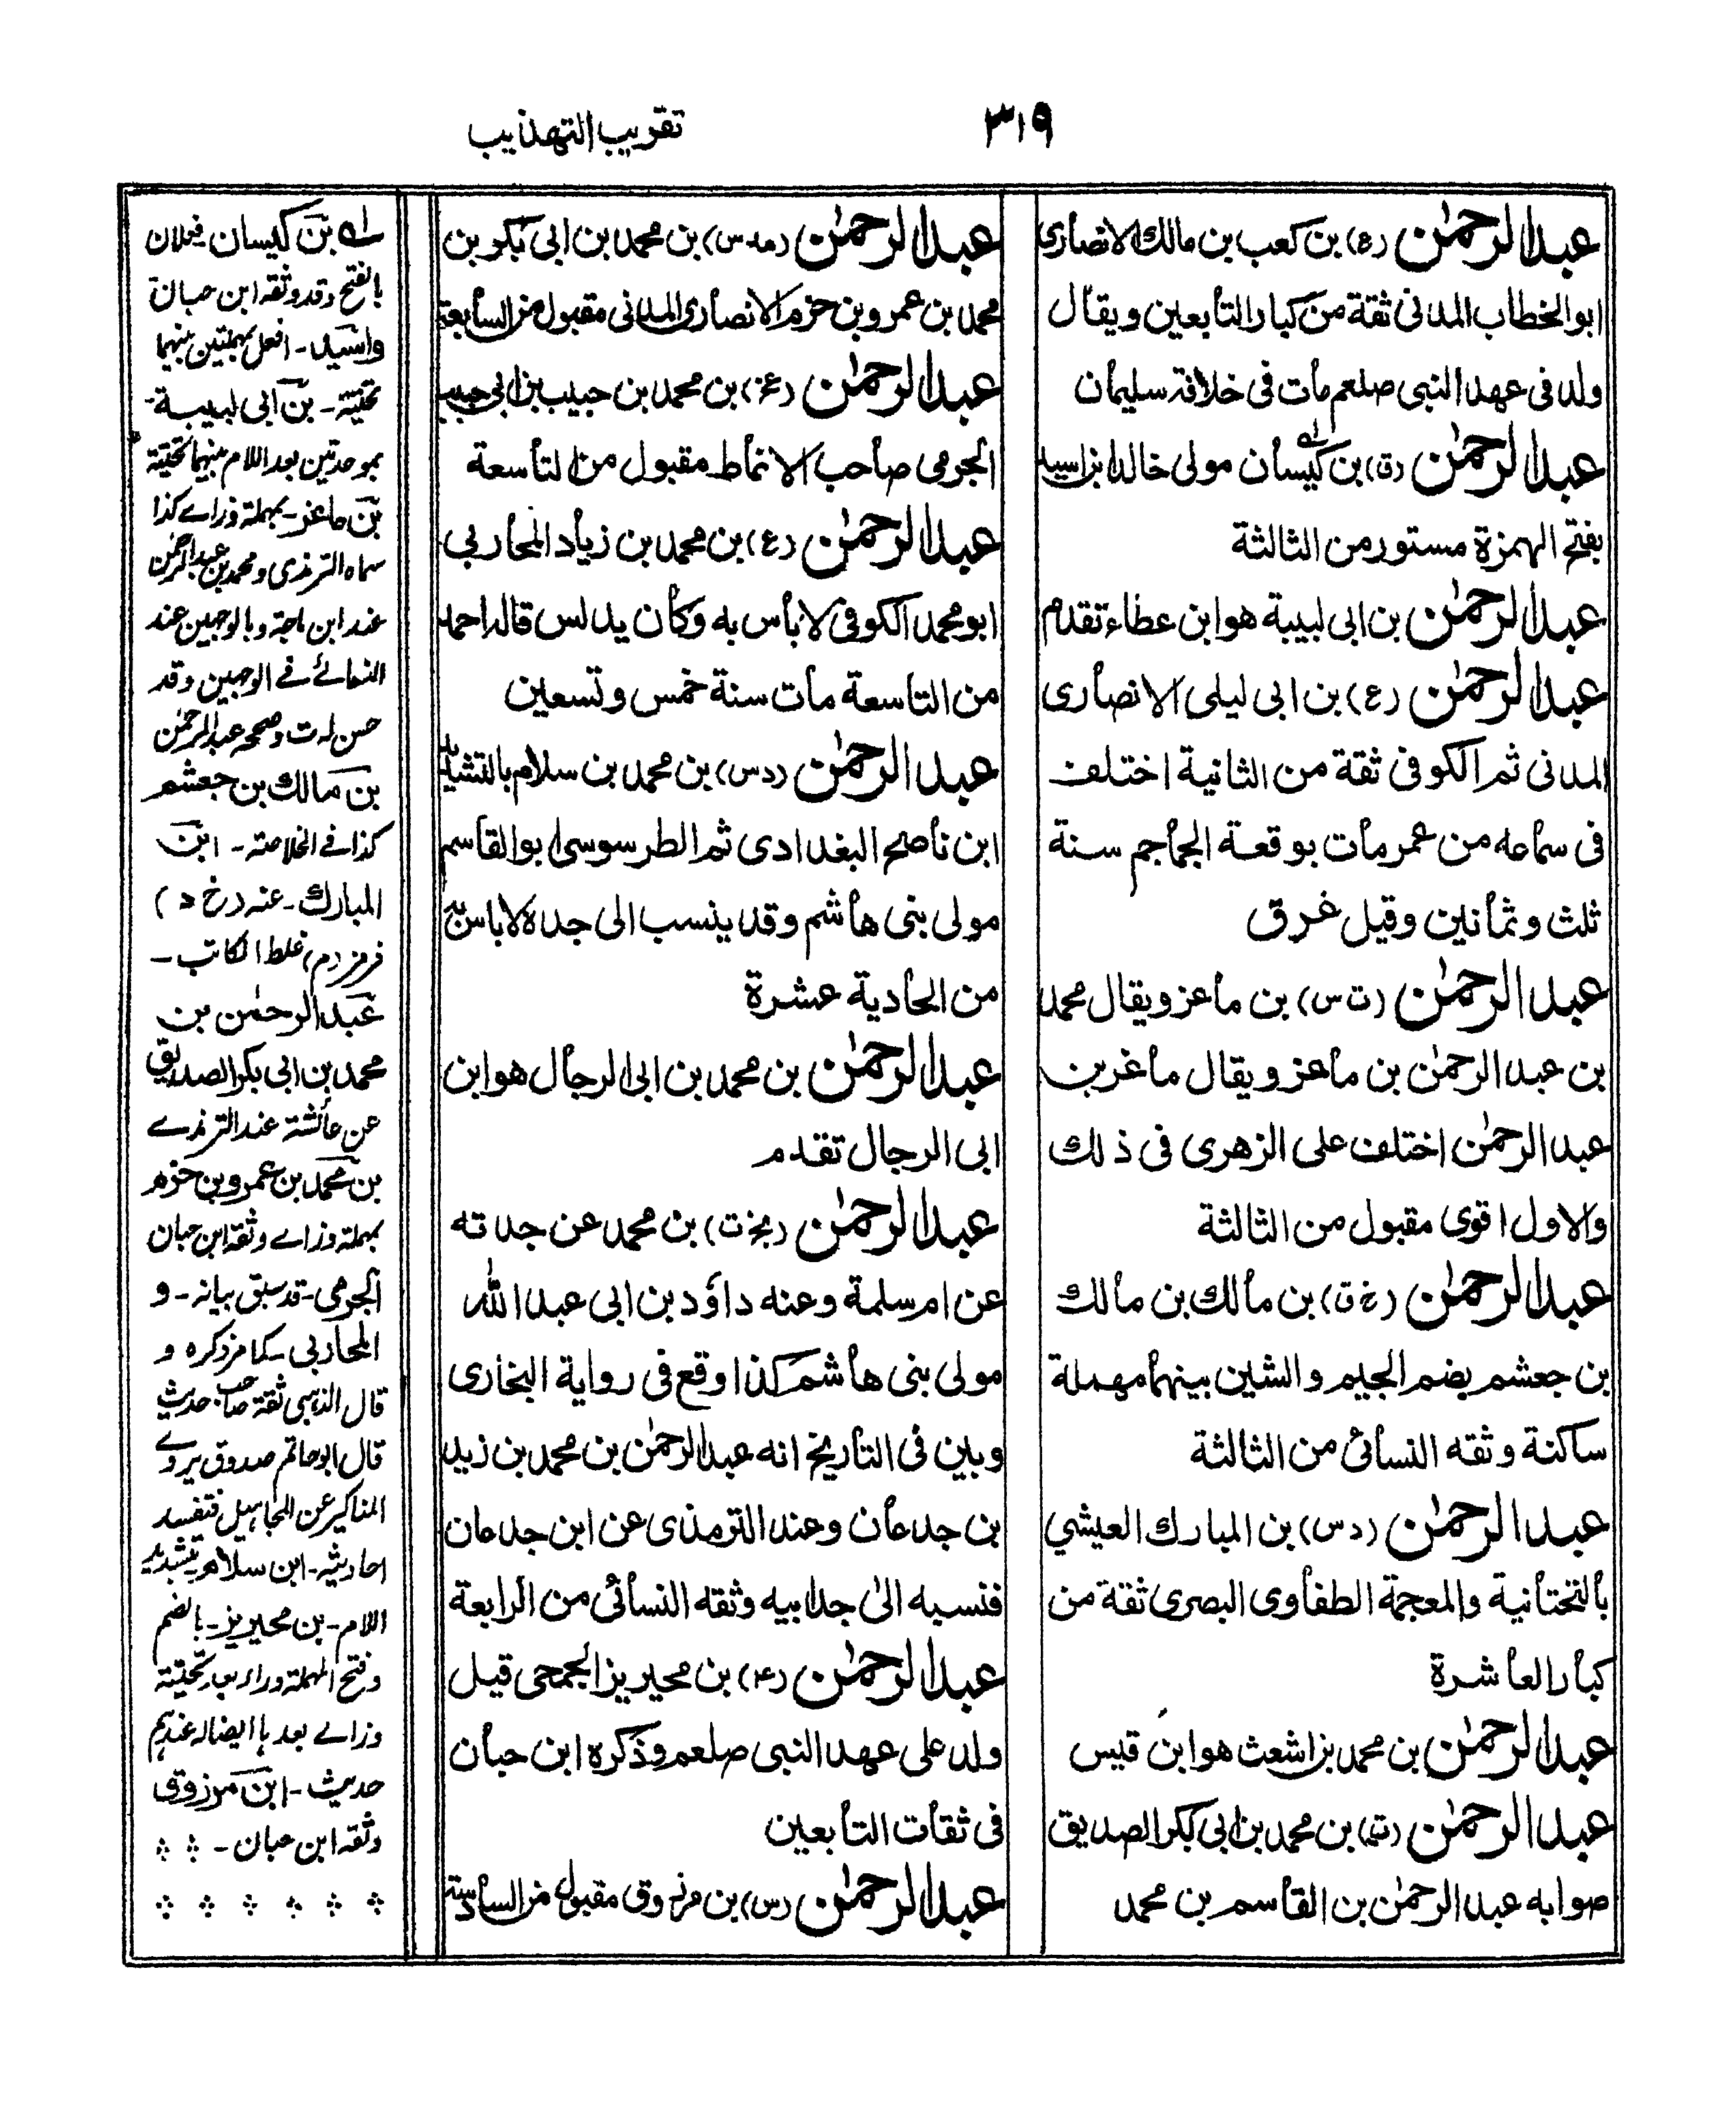 ٣١٩
تقريب التهذيب
عبد الرحمٰن (ع) بن كعب بن مالك الانصارى
ابو الخطاب المدنى ثقة من كبار التابعين ويقال
ولد فى عهد النبى صلعم مات فى خلافة سليمان
عبد الرحمٰن (ق) بن كيسان مولى خالد ابن اسيد
بفتح الهمزة مستور من الثالثة
عبد الرحمٰن بن ابى لبيبة هو ابن عطاء تقدم
عبد الرحمٰن (ع) بن ابى ليلى الانصارى
المدنى ثم الكوفى ثقة من الثانية اختلف
فى سماعه من عمر مات بوقعة الجماجم سنة
ثلث وثمانين وقيل غرق
عبد الرحمٰن (ت س) بن ماعز ويقال محمد
بن عبد الرحمٰن بن ماعز ويقال ماغر بن
عبد الرحمٰن اختلف على الزهرى فى ذلك
والاول اقوى مقبول من الثالثة
عبد الرحمٰن (خ ق) بن مالك بن مالك
بن جعشم بضم الجيم والشين بينهما مهملة
ساكنة وثقه النسائى من الثالثة
عبد الرحمٰن (د س) بن المبارك العيشي
بالتحتانية والمعجمة الطفاوى البصرى ثقة من
كبار العاشرة
عبد الرحمٰن بن محمد بن اشعث هو ابن قيس
عبد الرحمٰن (ت) بن محمد بن ابى بكر الصديق
صوابه عبد الرحمٰن بن القاسم بن محمد
عبد الرحمٰن (مد س) بن محمد بن ابى بكر بن
محمد بن عمرو بن حزم الانصارى المدنى مقبول من السابعة
عبد الرحمٰن (عخ) بن محمد بن حبيب بن ابى حبيب
الجرمى صاحب الانماط مقبول من التاسعة
عبد الرحمٰن (ع) بن محمد بن زياد المحاربى
ابو محمد الكوفى لا باس به وكان يدلس قاله احمد
من التاسعة مات سنة خمس وتسعين
عبد الرحمٰن (د س) بن محمد بن سلام بالتشديد
ابن ناصح البغدادى ثم الطرسوسى ابو القاسم
مولى بنى هاشم وقد ينسب الى جده لا باس به
من الحادية عشرة
عبد الرحمٰن بن محمد بن ابى الرجال هو ابن
ابى الرجال تقدم
عبد الرحمٰن (بخ ت) بن محمد عن جدته
عن ام سلمة وعنه داؤد بن ابى عبد الله
مولى بنى هاشم كذا وقع فى رواية البخارى
وبين فى التاريخ انه عبد الرحمٰن بن محمد بن زيد
بن جدعان وعند الترمذى عن ابن جدعان
فنسبه الىٰ جد ابيه وثقه النسائى من الرابعة
عبد الرحمٰن (عه) بن محيريز الجمحى قيل
ولد على عهد النبى صلعم وذكره ابن حبان
فى ثقات التابعين
عبد الرحمٰن (س) بن مرزوق مقبول من السادسة
بن كيسان - فعلان
بالفتح وقد وثقه ابن حبان
واسيد - افعل بمهملتين بينهما
تحتية - بن ابى لبيبة -
بموحدتين بعد اللام بينهما تحتية
بن ماعز - بمهملة وزاے كذا
سماه الترمذى ومحمد بن عبد الرحمٰن
عند ابن ماجة وبالوجهين عند
النسائے فے الوجهين وقد
حسن له ت وصححه عبد الرحمٰن
بن مالك بن جعشم
كذا فے الخلاصة - ابن
المبارك - عنه (خ د)
فرمز (م) غلط الكاتب -
عبد الرحمٰن بن
محمد بن ابى بكر الصديق
عن عائشة عند الترمذے
بن محمد بن عمرو بن حزم
بمهملة وزاے وثقه ابن حبان
الجرمى - قد سبق بيانه - و
المحاربى - كما مر ذكره و
قال الذهبى ثقة صاحب حديث
قال ابو حاتم صدوق يروے
المناكير عن المجاهيل فتفسد
احاديثه - ابن سلام بتشديد
اللام - بن محيريز - بالضم
وفتح المهملة وراء بعد تحتية
وزاے بعدها ايضا له عندهم
حديث - ابن مرزوق
وثقه ابن حبان -